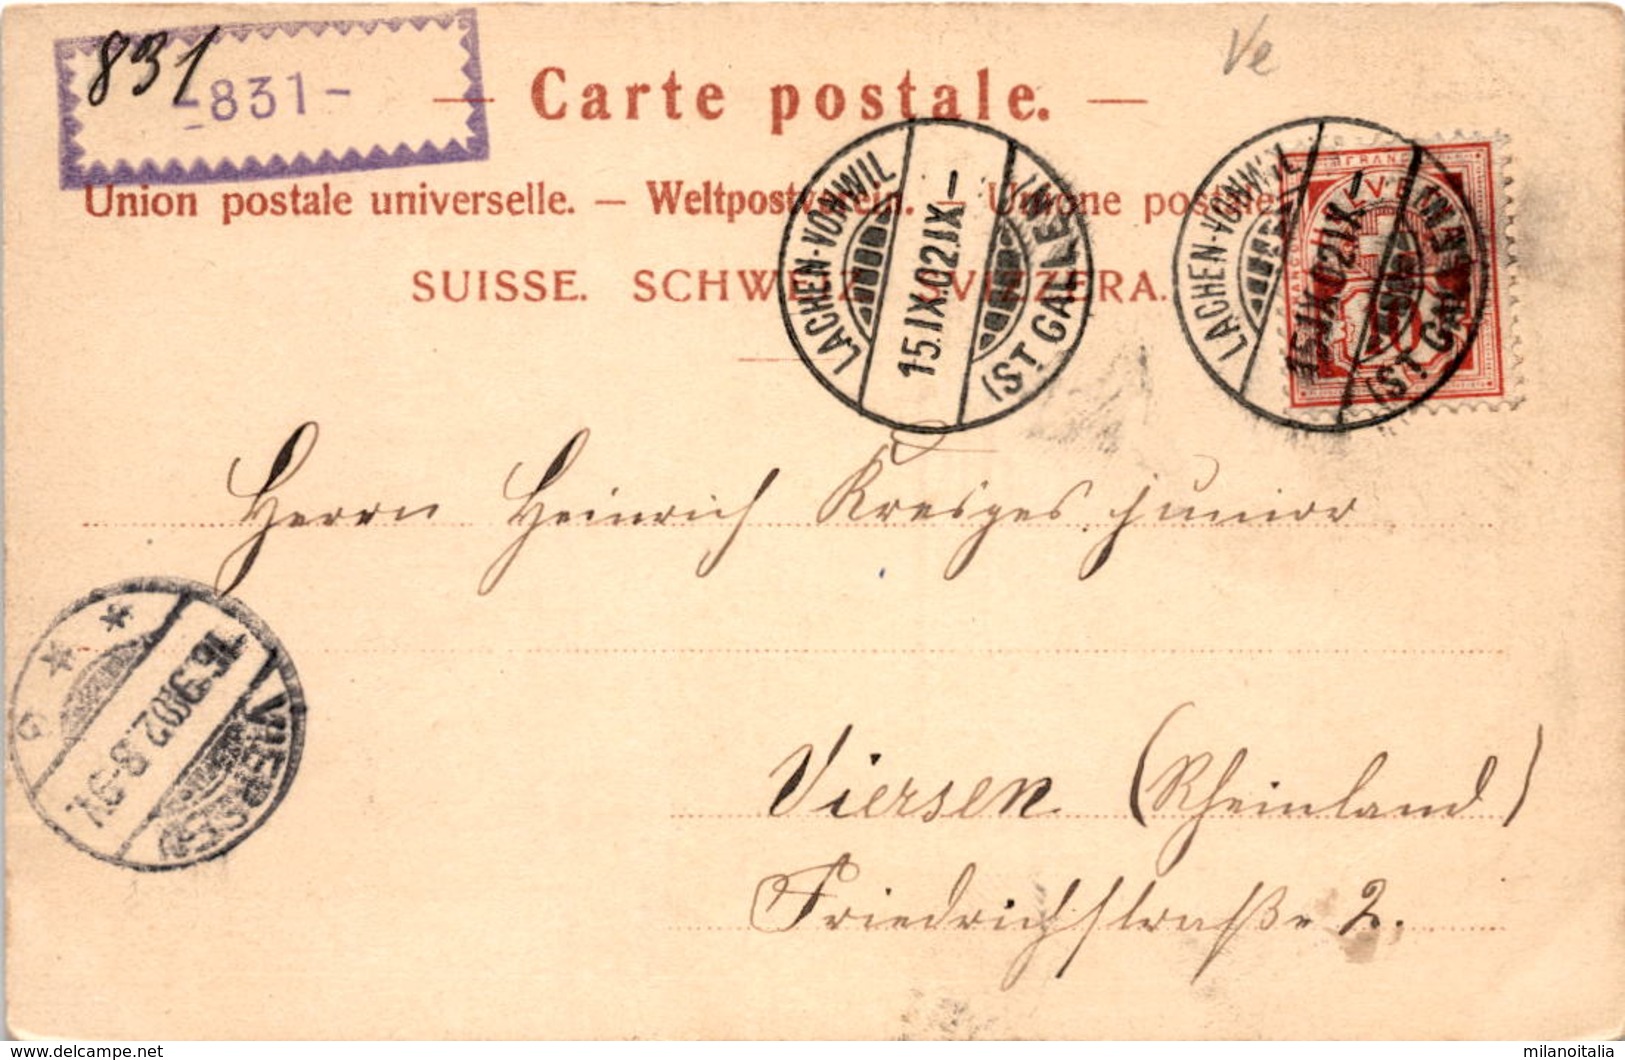 831
-831-
Ve
— Carte postale. —
Union postale universelle. — Weltpostverein. — Unione postale
SUISSE. SCHWEIZ. SVIZZERA.
LACHEN-VONWIL
15.IX.02.IX-
(ST. GALLEN)
LACHEN-VONWIL
15.IX.02.IX-
(ST. GALLEN)
HELVETIA
FRANCO
10
Herrn Heinrich Kresges junior
VIERSEN
16.9.02 8-9V.
Viersen (Rheinland)
Friedrichstraße 2.
www.delcampe.net
milanoitalia